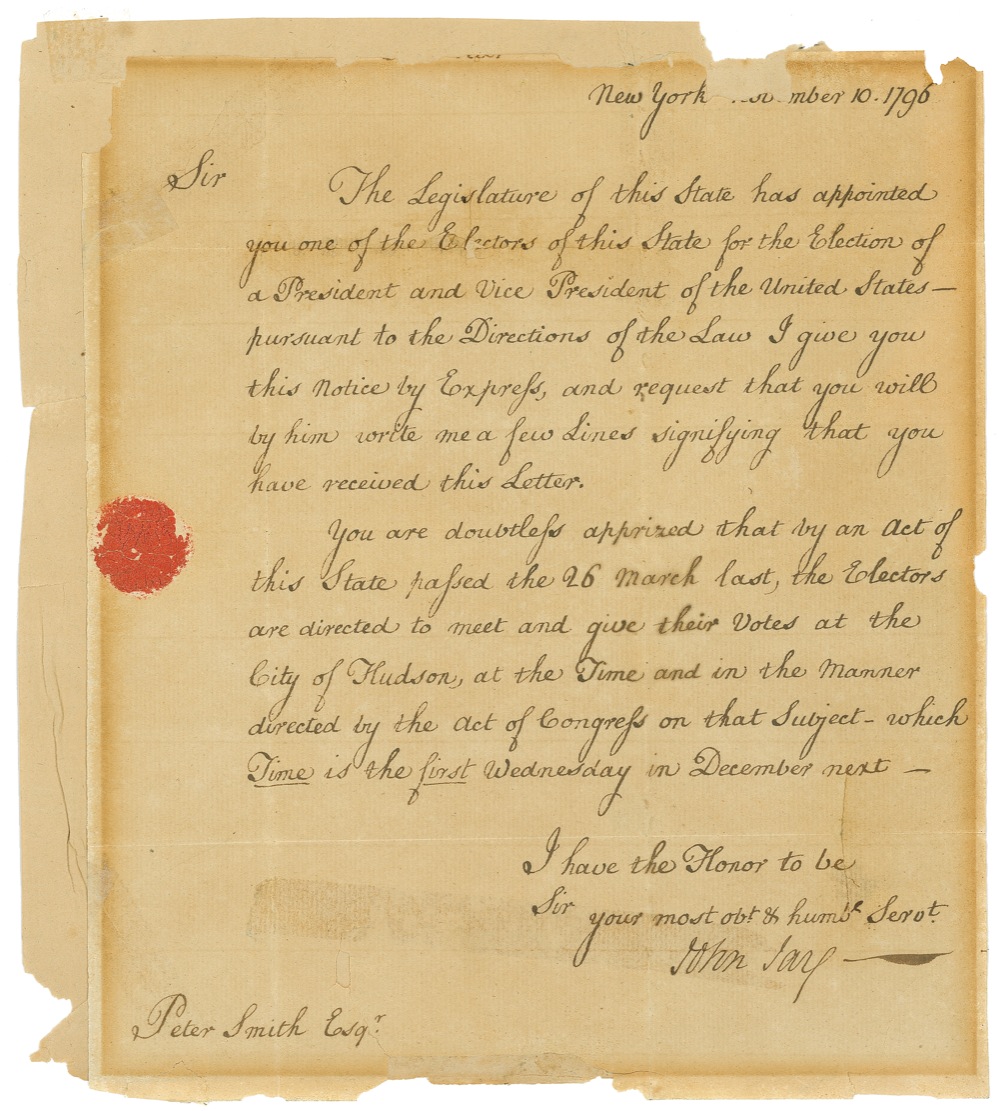 New York mber 10. 1796
Sir
The Legislature of this State has appointed
you one of the Electors of this State for the Election of
a President and Vice President of the United States —
pursuant to the Directions of the Law I give you
this Notice by Express, and request that you will
by him write me a few Lines signifying that you
have received this Letter.
You are doubtless apprized that by an Act of
this State passed the 26 March last, the Electors
are directed to meet and give their Votes at the
City of Hudson, at the Time and in the Manner
directed by the Act of Congress on that Subject – which
Time is the first Wednesday in December next —
I have the Honor to be
Sir your most obt. & humbe. Servt.
John Jay
Peter Smith Esqr.